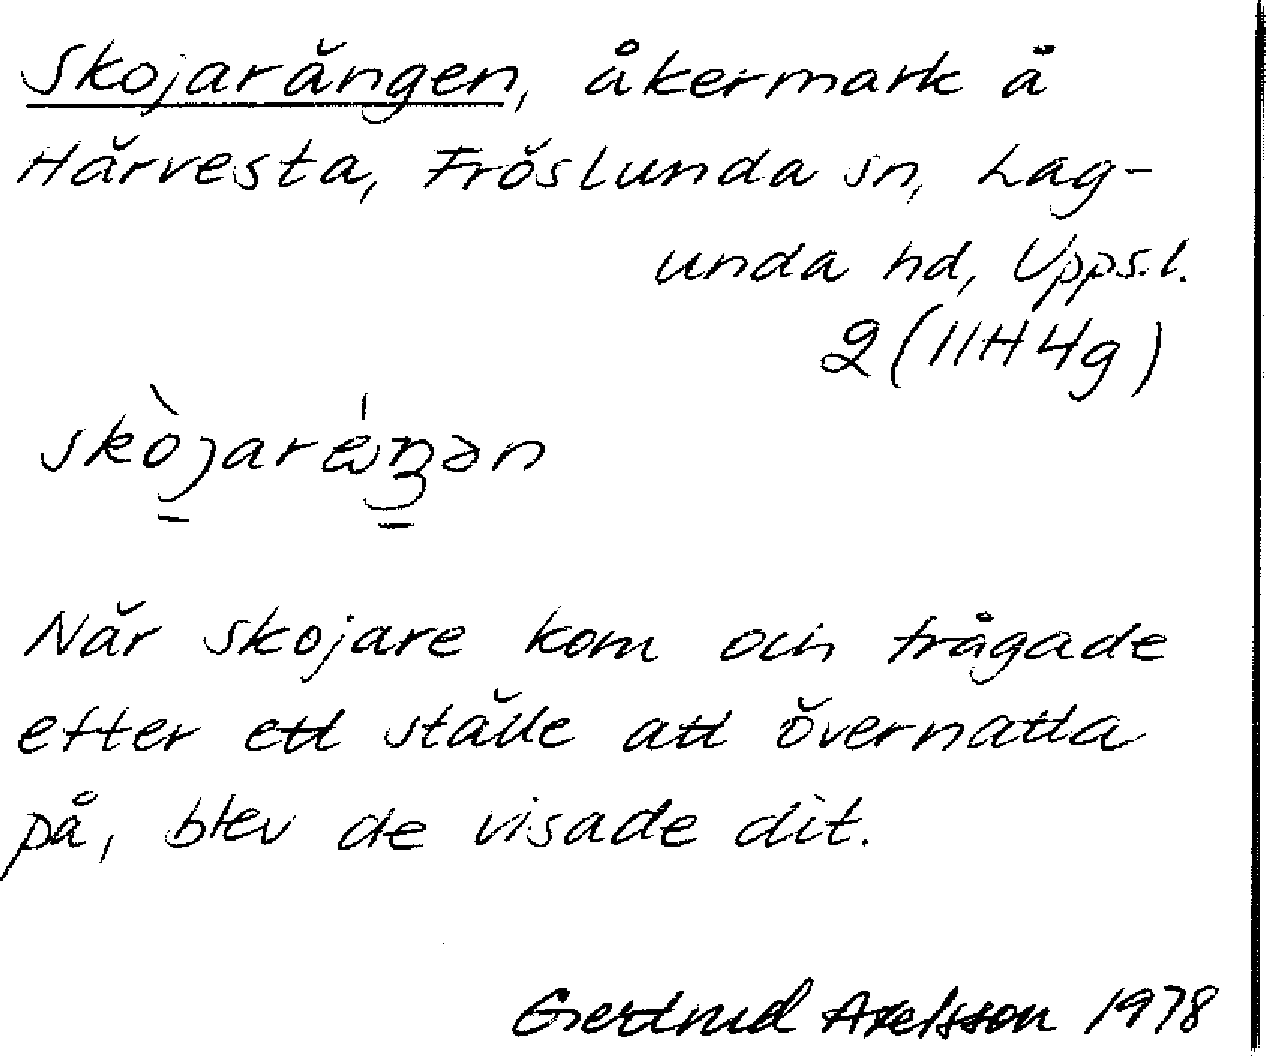 Skojarängen, åkermark å
Härvesta, Fröslunda sn, Lag-
unda hd, Upps.l.
2 (11H4g)
När skojare kom och frågade
efter ett ställe att övernatta
på, blev de visade dit.
Gertrud Axelsson 1978